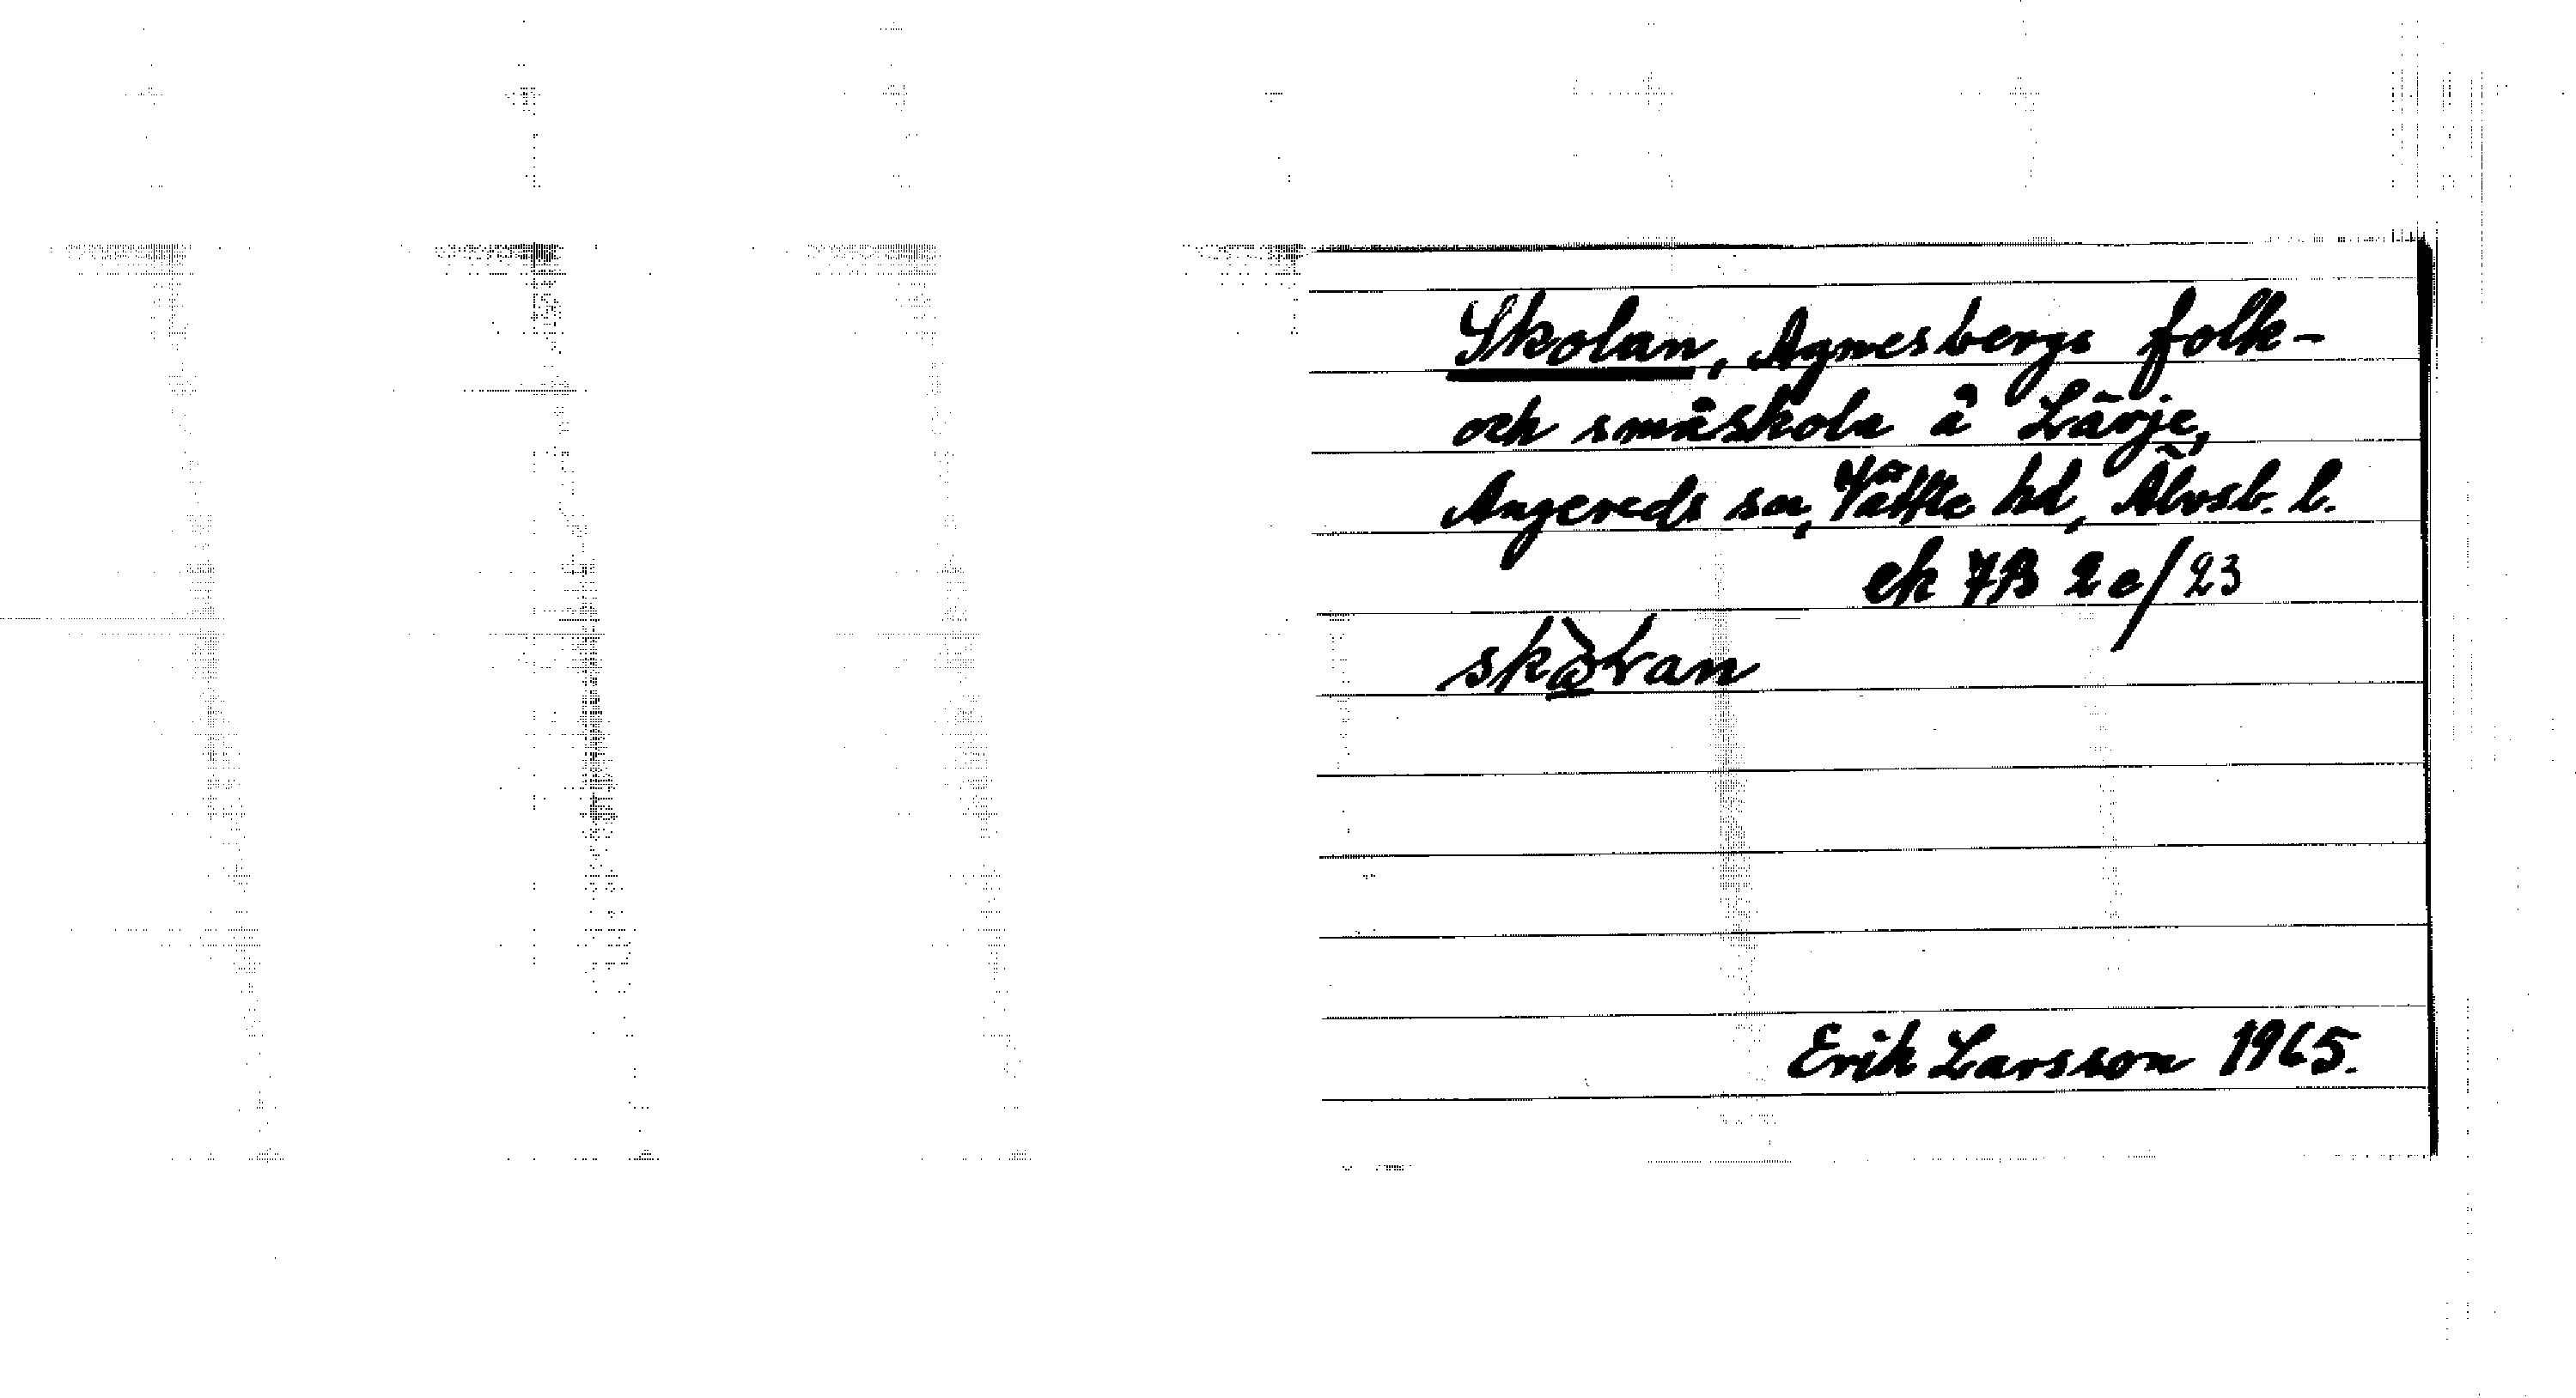 Skolan, Agnesbergs folk-
och småskola å Lärje,
Angereds sn, Vättle hd, Älvsb. l.
ek 7B 2e/23
skὰLan
Erik Larsson 1965.